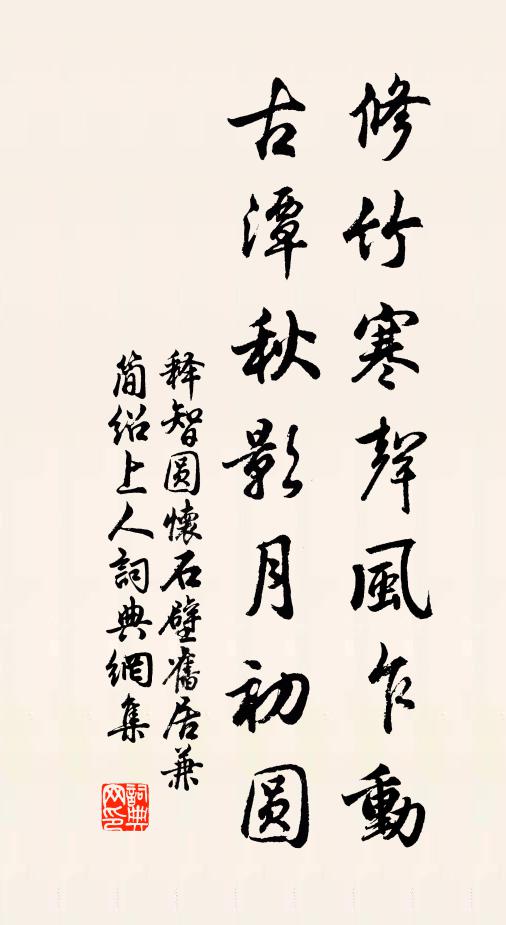 修竹寒聲風乍動
古潭秋影月初圆
释智圆懷石壁舊居兼
简绍上人詞典網集
詞典
网印